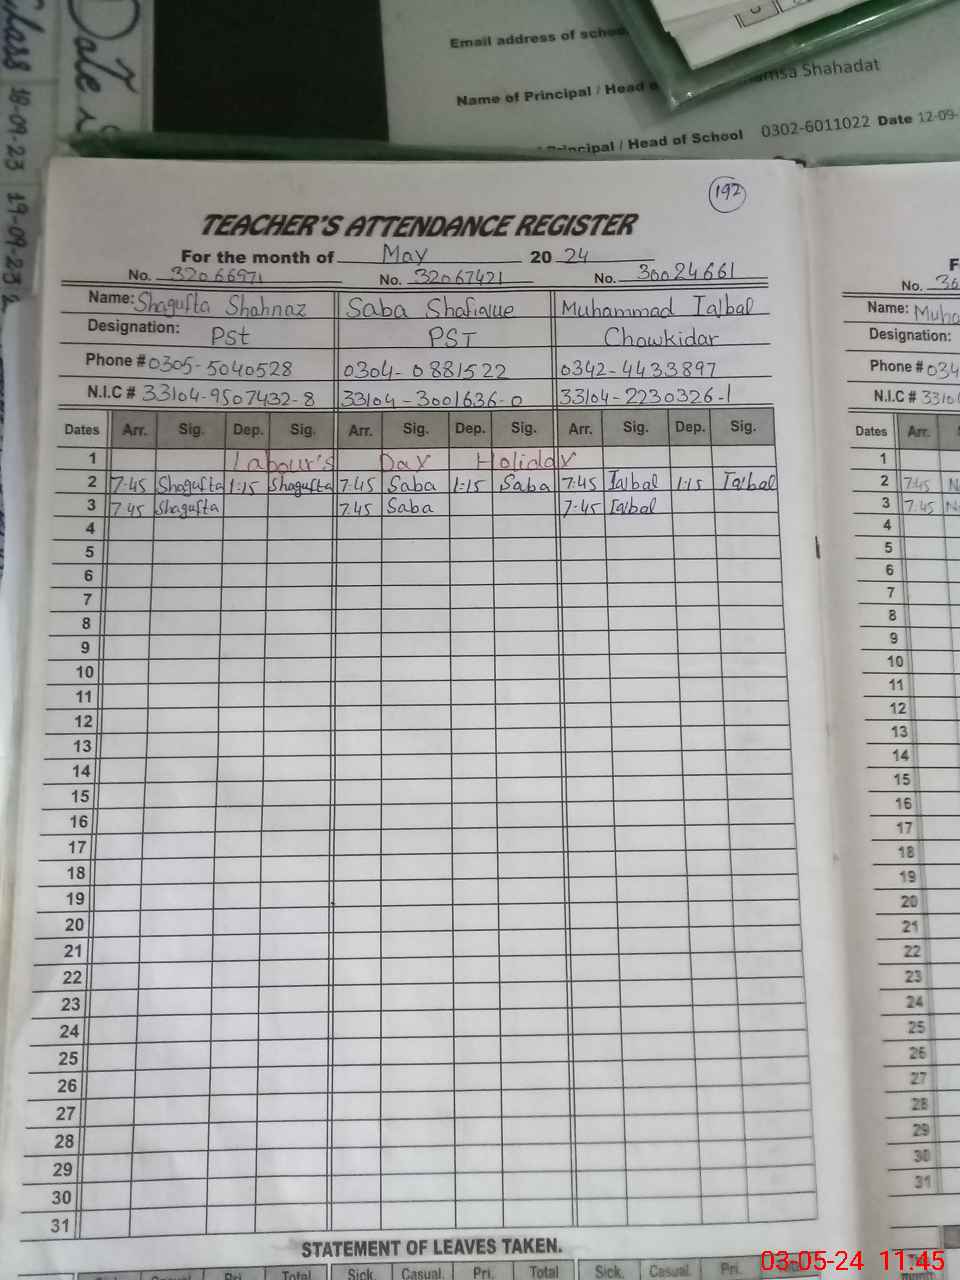 Date
Class 18-09-23 19-09-23
Email address of
Name of Principal / Head Shahadat
/ Head of School 0302-6011022 Date 12-09-
192
TEACHER'S ATTENDANCE REGISTER
For the month of May 20 24
No. 32066971 No. 32067421 No. 30024661
Name: Shagufta Shahnaz Saba Shafique Muhammad Iqbal
Designation: Pst PST Chowkidar
Phone # 0305-5040528 0304-0881522 0342-4433897
N.I.C # 33104-9507432-8 33104-3001636-0 33104-2230326-1
Dates Arr. Sig. Dep. Sig. Arr. Sig. Dep. Sig. Arr. Sig. Dep. Sig.
1 Labour's Day Holiday
2 7:45 Shagufta 1:15 Shagufta 7:45 Saba 1:15 Saba 7:45 Iqbal 1:15 Iqbal
3 7:45 Shagufta 7:45 Saba 7:45 Iqbal
4
5
6
7
8
9
10
11
12
13
14
15
16
17
18
19
20
21
22
23
24
25
26
27
28
29
30
31
STATEMENT OF LEAVES TAKEN.
Sick Casual Pri. Total Sick. Casual. Pri. Total Sick. Casual. Pri.
F
No. 30
Name: Muha
Designation:
Phone # 034
N.I.C # 3310
Dates Arr.
1
2 7:45
3 7:45
4
5
6
7
8
9
10
11
12
13
14
15
16
17
18
19
20
21
22
23
24
25
26
27
28
29
30
31
03-05-24 11:45